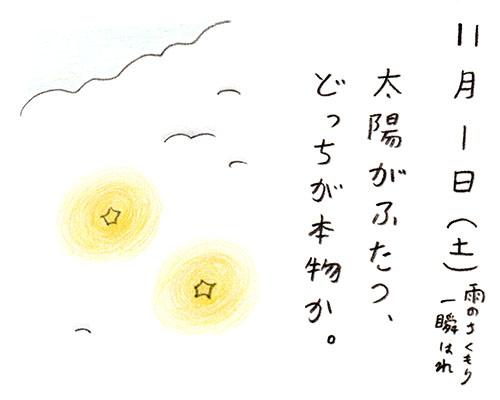 11月1日(土)
雨のちくもり
一瞬はれ
太陽がふたつ、
どっちが本物か。